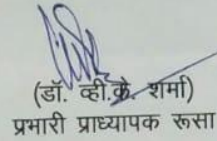 (डॉ. व्ही.के. शर्मा)
प्रभारी प्राध्यापक रूसा